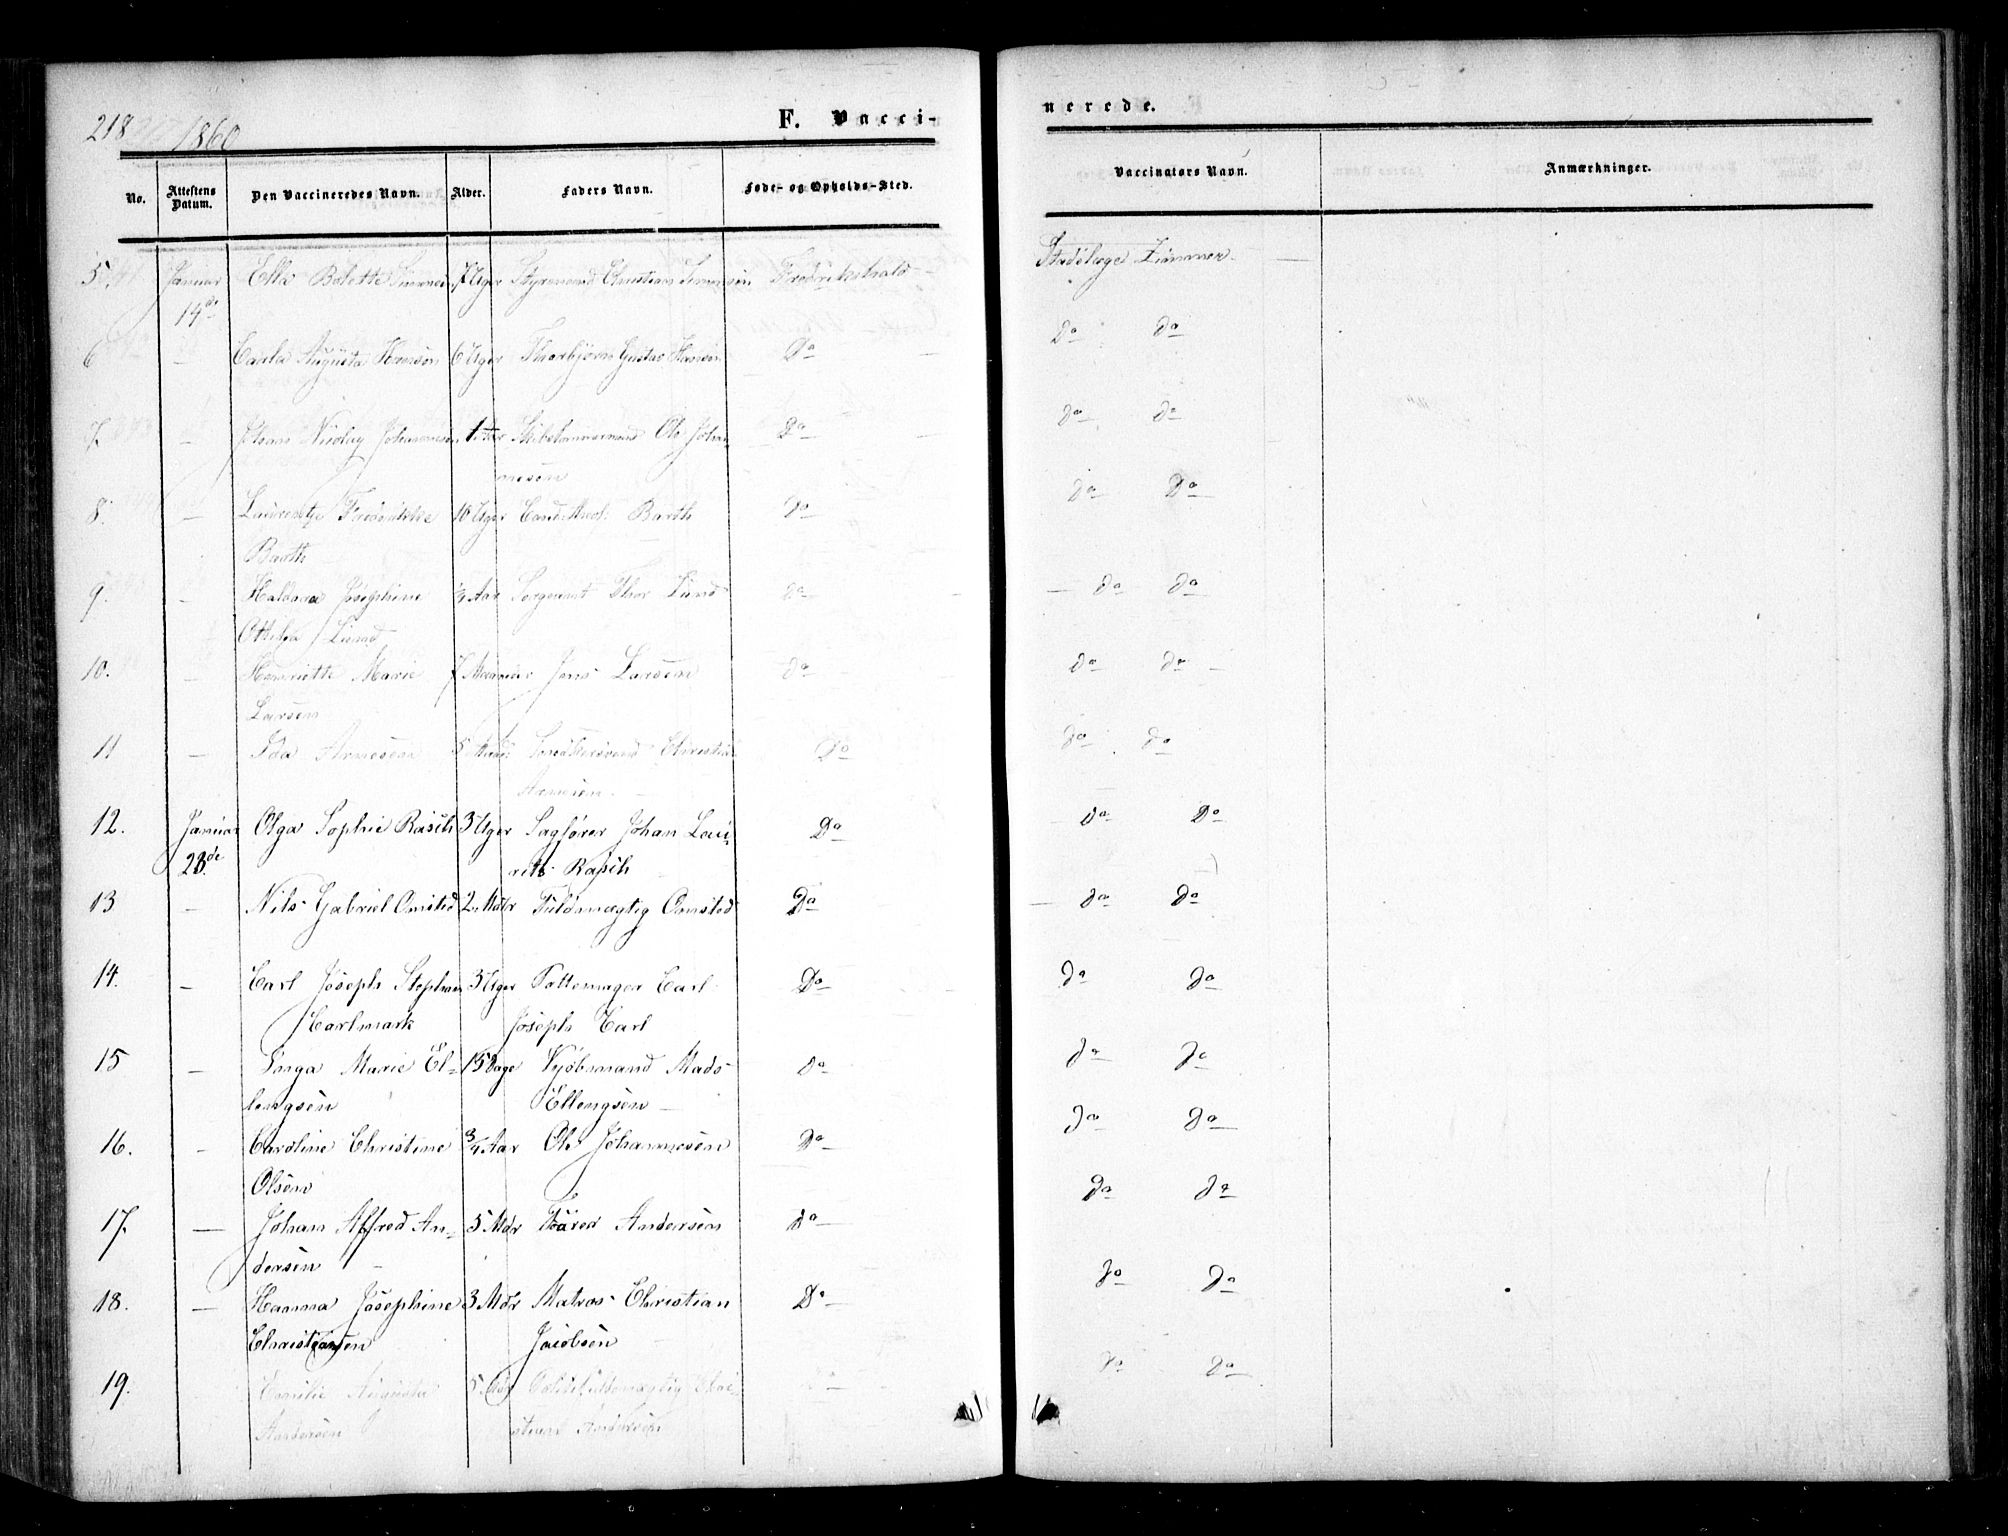 218 1860
F. Vacci-
nerede.
No. Attestens Datum. Den Vaccineredes Navn. Alder. Faders Navn. Føde- og Opholds-Sted. Vaccinatørs Navn. Anmærkninger.
5. Januar Elka Bolette 7 Uger Styrmand Christian Simonsen Fredrikshald Stadslæge Zimmer
14de
6 — Carla Augusta Hansen 6 Uger Thorbjørn Gustav Hansen Do Do do
7. — Johan Nicolay Johannesen 1 Aar Skibstømmermand Ole Johan- Do do do
nesen
8. — Laurentze Fredrikke 10 Uger Cand. Barth Do do Do
Barth
9. — Haldora Josephine ¾ Aar Sergeant Thor Lund do do do
Ottilia Lund
10. — Henriette Marie 7 Maaneder Jens Larsen do do do
Larsen
11 — Ida Arnesen 5 Maad: Christia Do do do
Arnesen
12. Januar Olga Sophie Rasch 3 Uger Sagfører Johan Lau- Do do Do
28de ritz Rasch
13 — Nils Gabriel Omsted 2 Mdr Fuldmægtig Omsted Do do do
14. — Carl Joseph Stephan 3 Uger Pottemager Carl Do do do
Carlmark Joseph Carl
15 — Inga Marie El- 15 Dage Kjøbmand Mads Do do do
lengsen Ellengsen
16. — Caroline Christine ¾ Aar Ole Johannesen Do do do
Olsen
17. — Johan Alfred An- 5 Mdr Andersen do Do do
dersen
18. — Hanna Josephine 3 Mdr Matros Christian Do do do
Christiansen Jacobsen
19. Emilie Augusta 5 Mdr Chri- do do do
Andersen stian Andersen